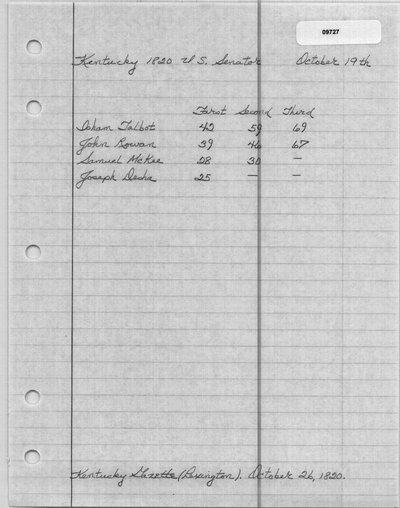 09727
Kentucky 1820 U.S. Senator October 19th
First Second Third
Isham Talbot 42 59 69
John Rowan 39 46 67
Samuel McKee 28 30 —
Joseph Desha 25 — —
Kentucky Gazette (Lexington). October 26, 1820.